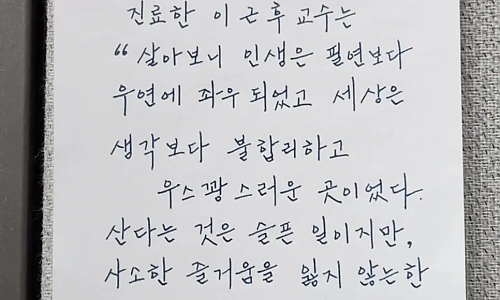 진료한 이근후 교수는
“살아보니 인생은 필연보다
우연에 좌우되었고 세상은
생각보다 불합리하고
우스꽝스러운 곳이었다.
산다는 것은 슬픈 일이지만,
사소한 즐거움을 잃지 않는한